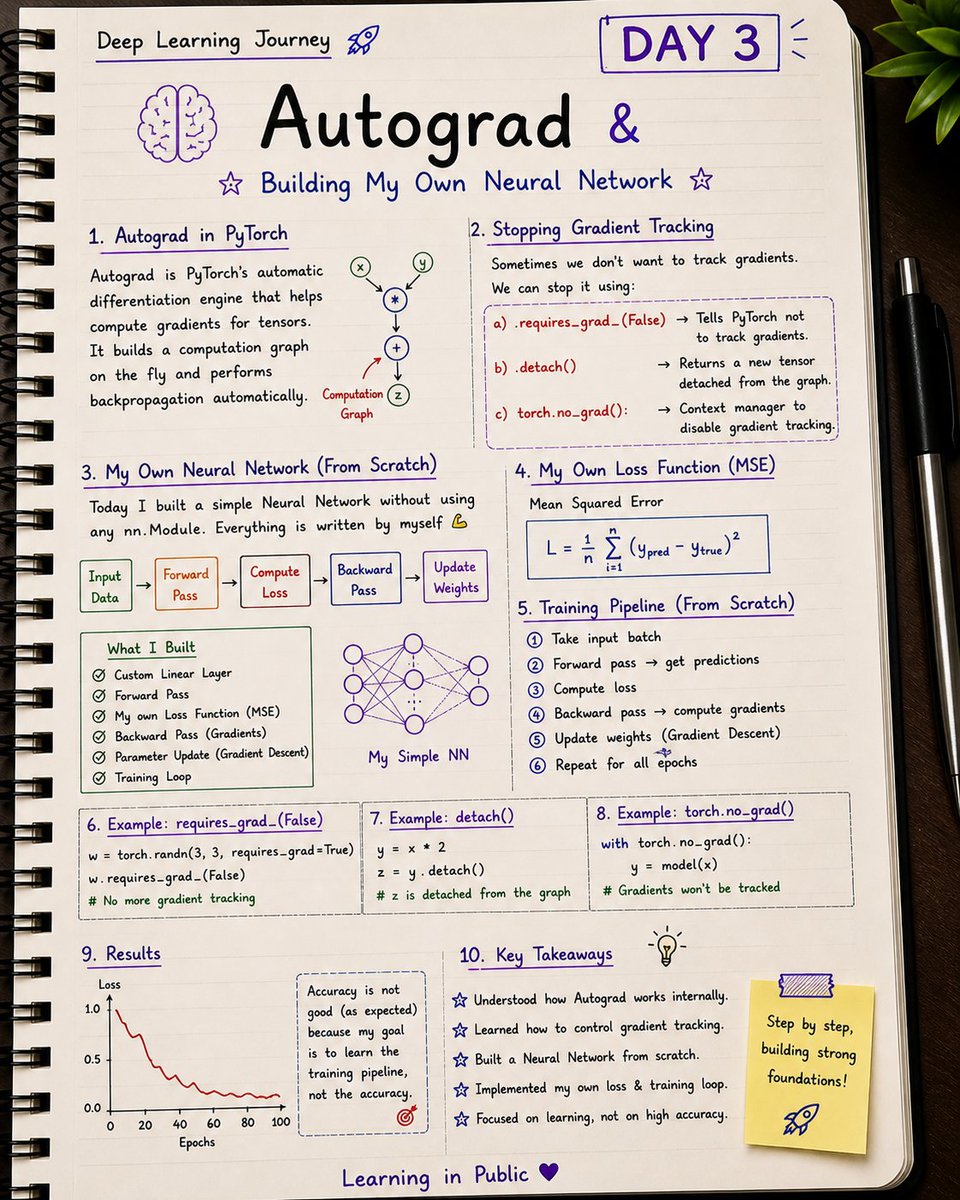 Deep Learning Journey
DAY 3
Autograd &
Building My Own Neural Network
1. Autograd in PyTorch
Autograd is PyTorch's automatic
differentiation engine that helps
compute gradients for tensors.
It builds a computation graph
on the fly and performs
backpropagation automatically.
x
y
*
+
z
Computation
Graph
2. Stopping Gradient Tracking
Sometimes we don't want to track gradients.
We can stop it using:
a) .requires_grad_(False) → Tells PyTorch not
to track gradients.
b) .detach() → Returns a new tensor
detached from the graph.
c) torch.no_grad(): → Context manager to
disable gradient tracking.
3. My Own Neural Network (From Scratch)
Today I built a simple Neural Network without using
any nn.Module. Everything is written by myself 💪
Input
Data
→
Forward
Pass
→
Compute
Loss
→
Backward
Pass
→
Update
Weights
What I Built
Custom Linear Layer
Forward Pass
My own Loss Function (MSE)
Backward Pass (Gradients)
Parameter Update (Gradient Descent)
Training Loop
...
My Simple NN
4. My Own Loss Function (MSE)
Mean Squared Error
L = 1/n Σ i=1 n (y_pred - y_true)²
5. Training Pipeline (From Scratch)
① Take input batch
② Forward pass → get predictions
③ Compute loss
④ Backward pass → compute gradients
⑤ Update weights (Gradient Descent)
⑥ Repeat for all epochs
6. Example: requires_grad_(False)
w = torch.randn(3, 3, requires_grad=True)
w.requires_grad_(False)
# No more gradient tracking
7. Example: detach()
y = x * 2
z = y.detach()
# z is detached from the graph
8. Example: torch.no_grad()
with torch.no_grad():
y = model(x)
# Gradients won't be tracked
9. Results
Loss
1.0
0.5
0.0
0 20 40 60 80 100
Epochs
Accuracy is not
good (as expected)
because my goal
is to learn the
training pipeline,
not the accuracy.
10. Key Takeaways
Understood how Autograd works internally.
Learned how to control gradient tracking.
Built a Neural Network from scratch.
Implemented my own loss & training loop.
Focused on learning, not on high accuracy.
Step by step,
building strong
foundations!
Learning in Public